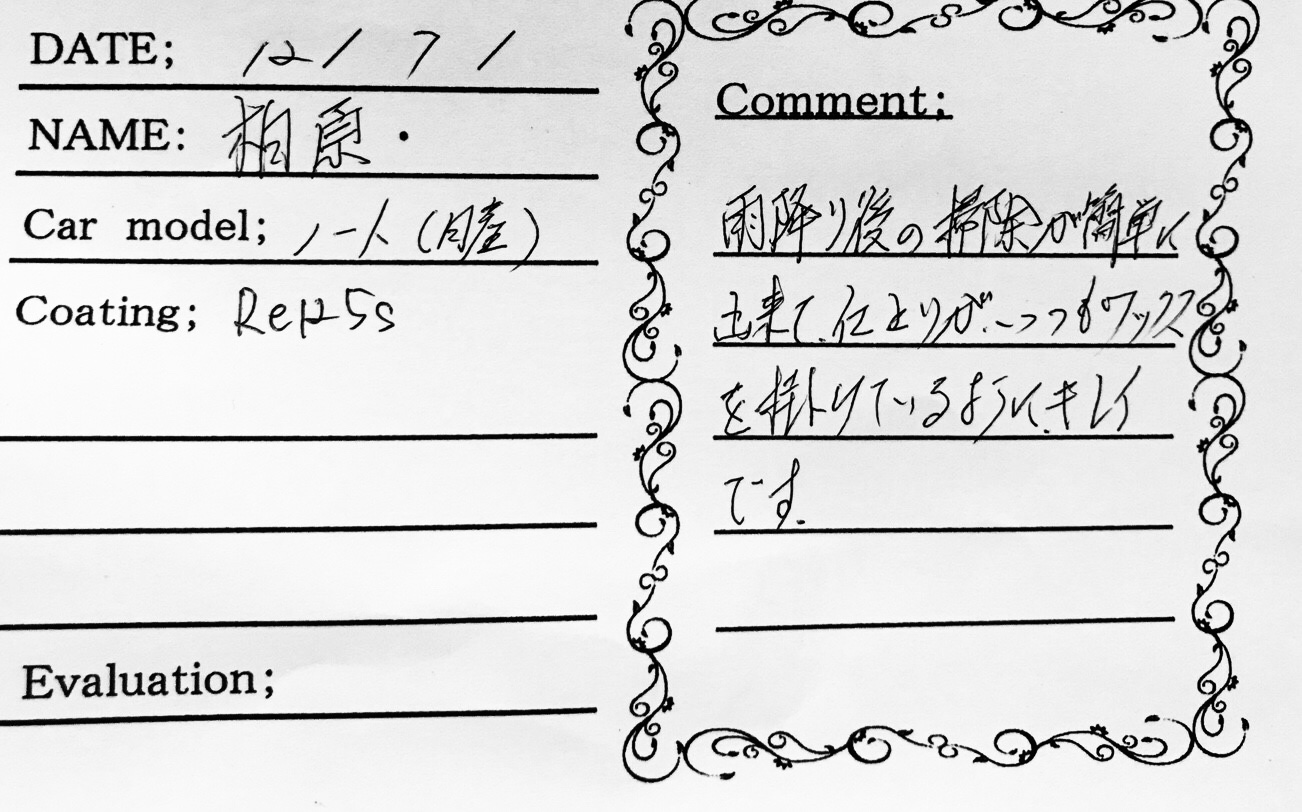 DATE; 12/7/
NAME: 柏原.
Car model; ノート(日産)
Coating;
Evaluation;
Comment;
雨降り後の掃除が簡単に
出来て、仕上りが、いつもワックス
を掛けているようにキレイ
です。